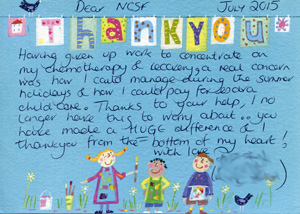 Dear NCSF JULY 2015
Thank you
Having given up work to concentrate on
my chemotherapy & recovery a real concern
was how I could manage during the summer
holidays & how I could pay for
child care. Thanks to your help, I no
longer have this to worry about.. you
have made a HUGE difference & I
thankyou from the bottom of my heart!
with love